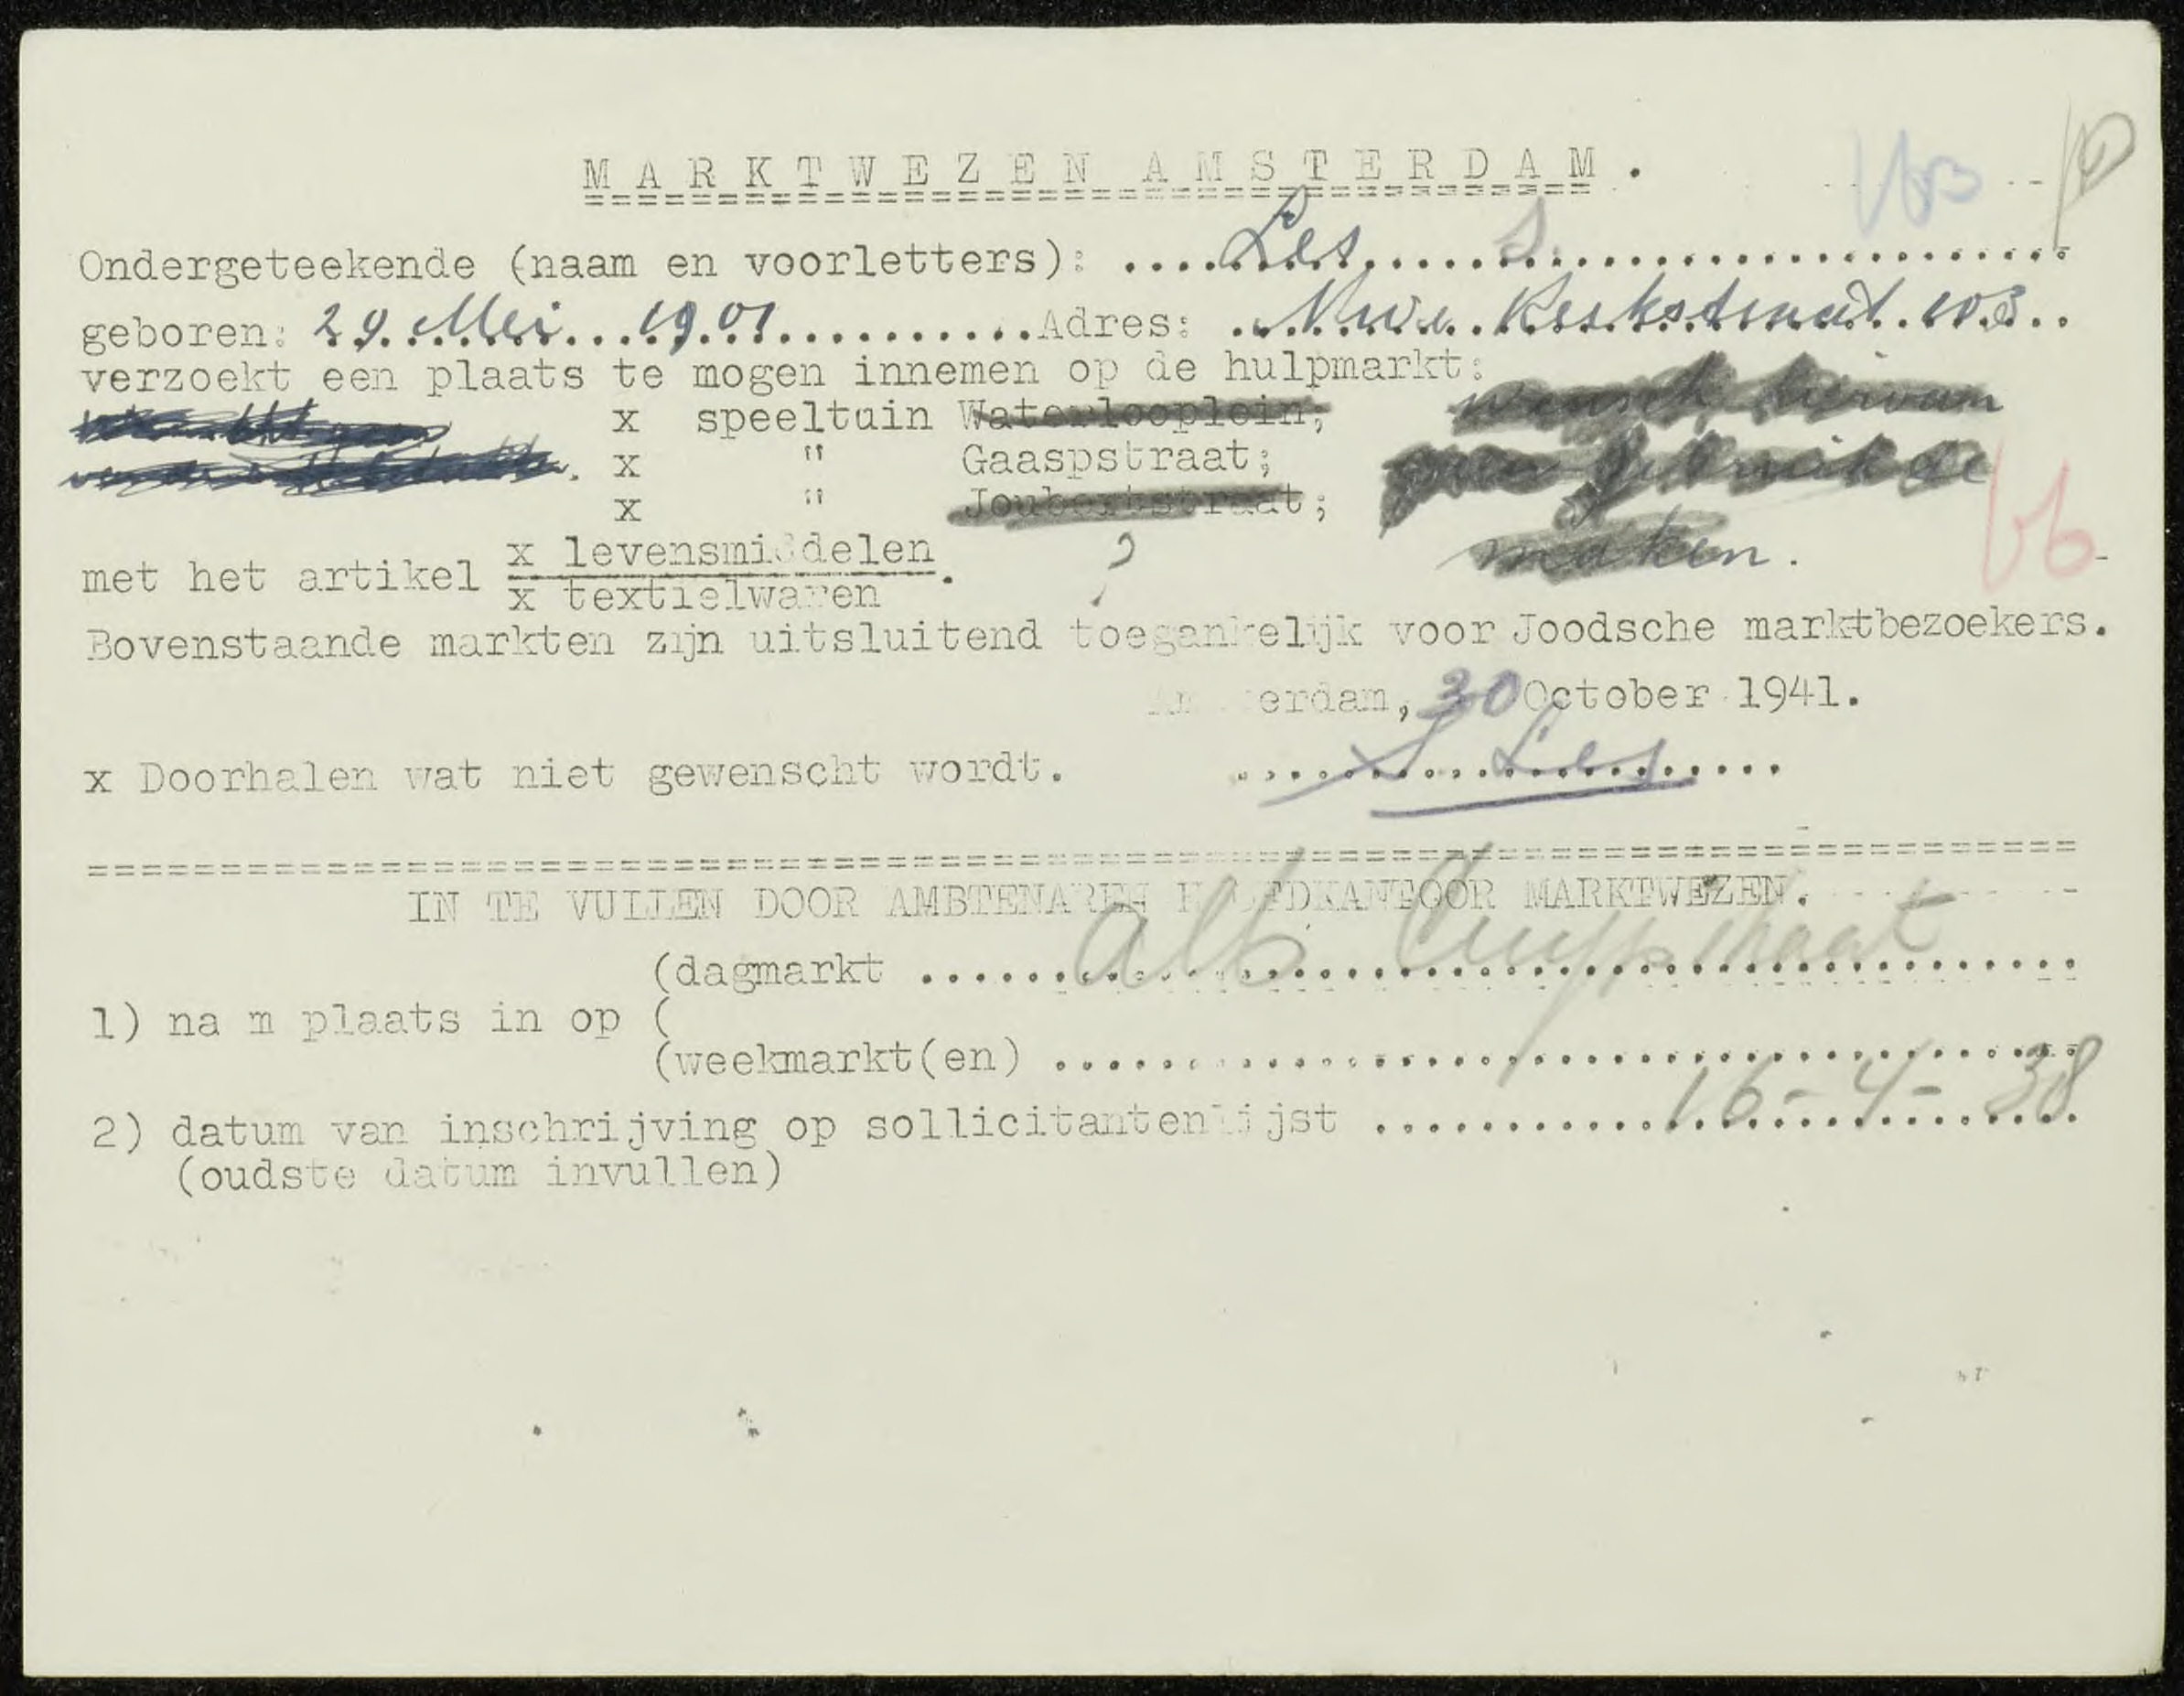 MARKTWEZEN AMSTERDAM.
Ondergeteekende (naam en voorletters): Les S.
geboren: 29 Mei 1901 Adres: Nwe. Kerkstraat 103
verzoekt een plaats te mogen innemen op de hulpmarkt:
x speeltuin Waterlooplein; wensch hiervan
x " Gaaspstraat; geen gebruik te
x " Joubertstraat;
maken.
met het artikel x levensmiddelen
x textielwaren.
?
Bovenstaande markten zijn uitsluitend toegankelijk voor Joodsche marktbezoekers.
Amsterdam, 30 October 1941.
x Doorhalen wat niet gewenscht wordt. S Les
IN TE VULLEN DOOR AMBTENAREN HOOFDKANTOOR MARKTWEZEN.
(dagmarkt Alb Cuypstraat
1) na m plaats in op (
(weekmarkt(en)
2) datum van inschrijving op sollicitantenlijst 16-4-38
(oudste datum invullen)